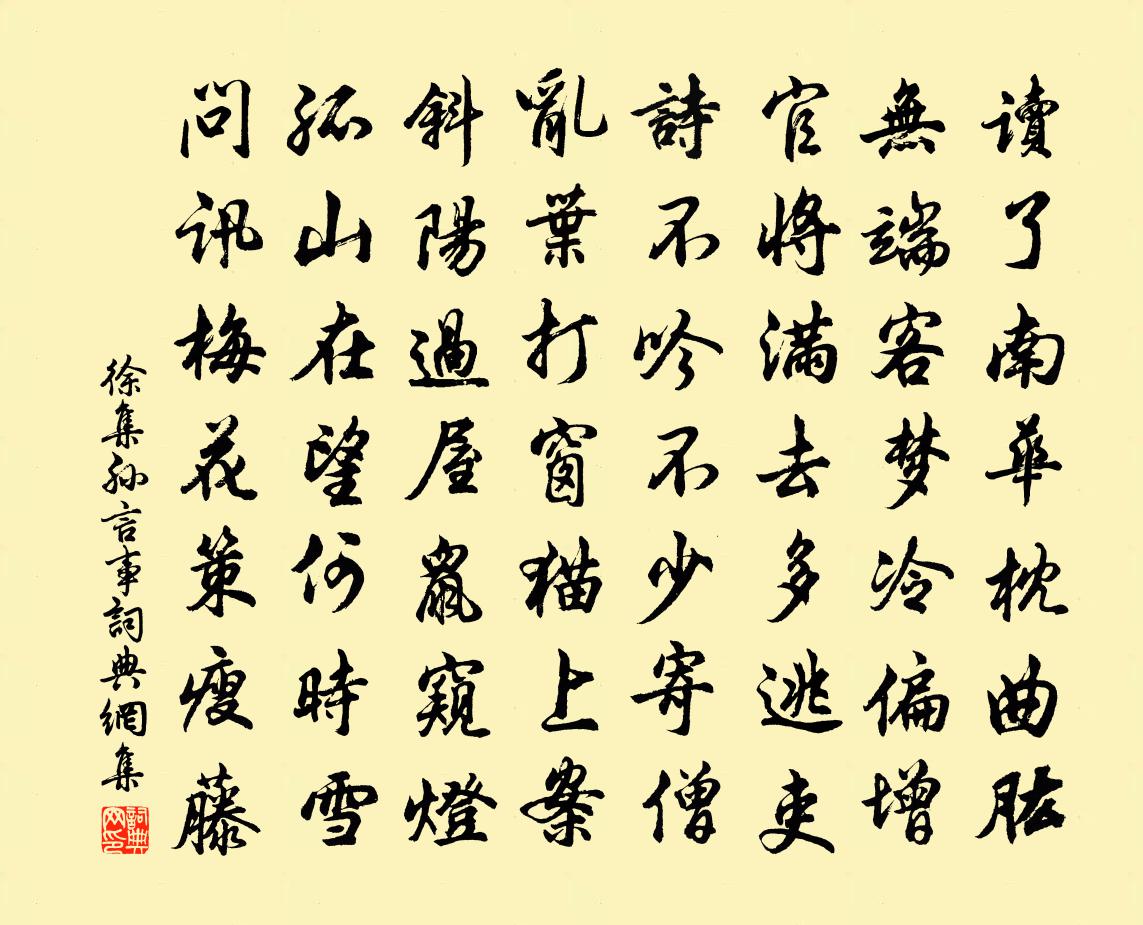 读了南華枕曲肱
無端客梦冷偏增
官將滿去多逃吏
詩不吟不少寄僧
亂葉打窗猫上案
斜陽過屋鼠窺燈
孤山在望何時雪
問訊梅花策瘦藤
徐集孙言事詞典網集
詞典网印